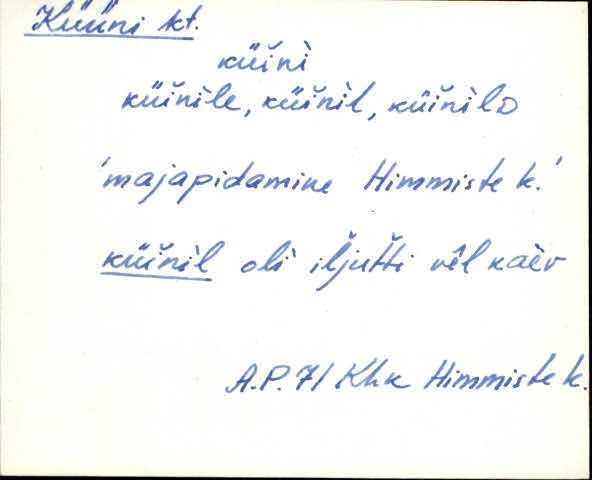 Küüni kt.
küi̮ni
küi̮nile, küi̮nil, küi̮nilə
'majapidamine Himmiste k.'
küi̮nil oli iljutti vêl kaèv
A.P. 71 Khk Himmiste k.